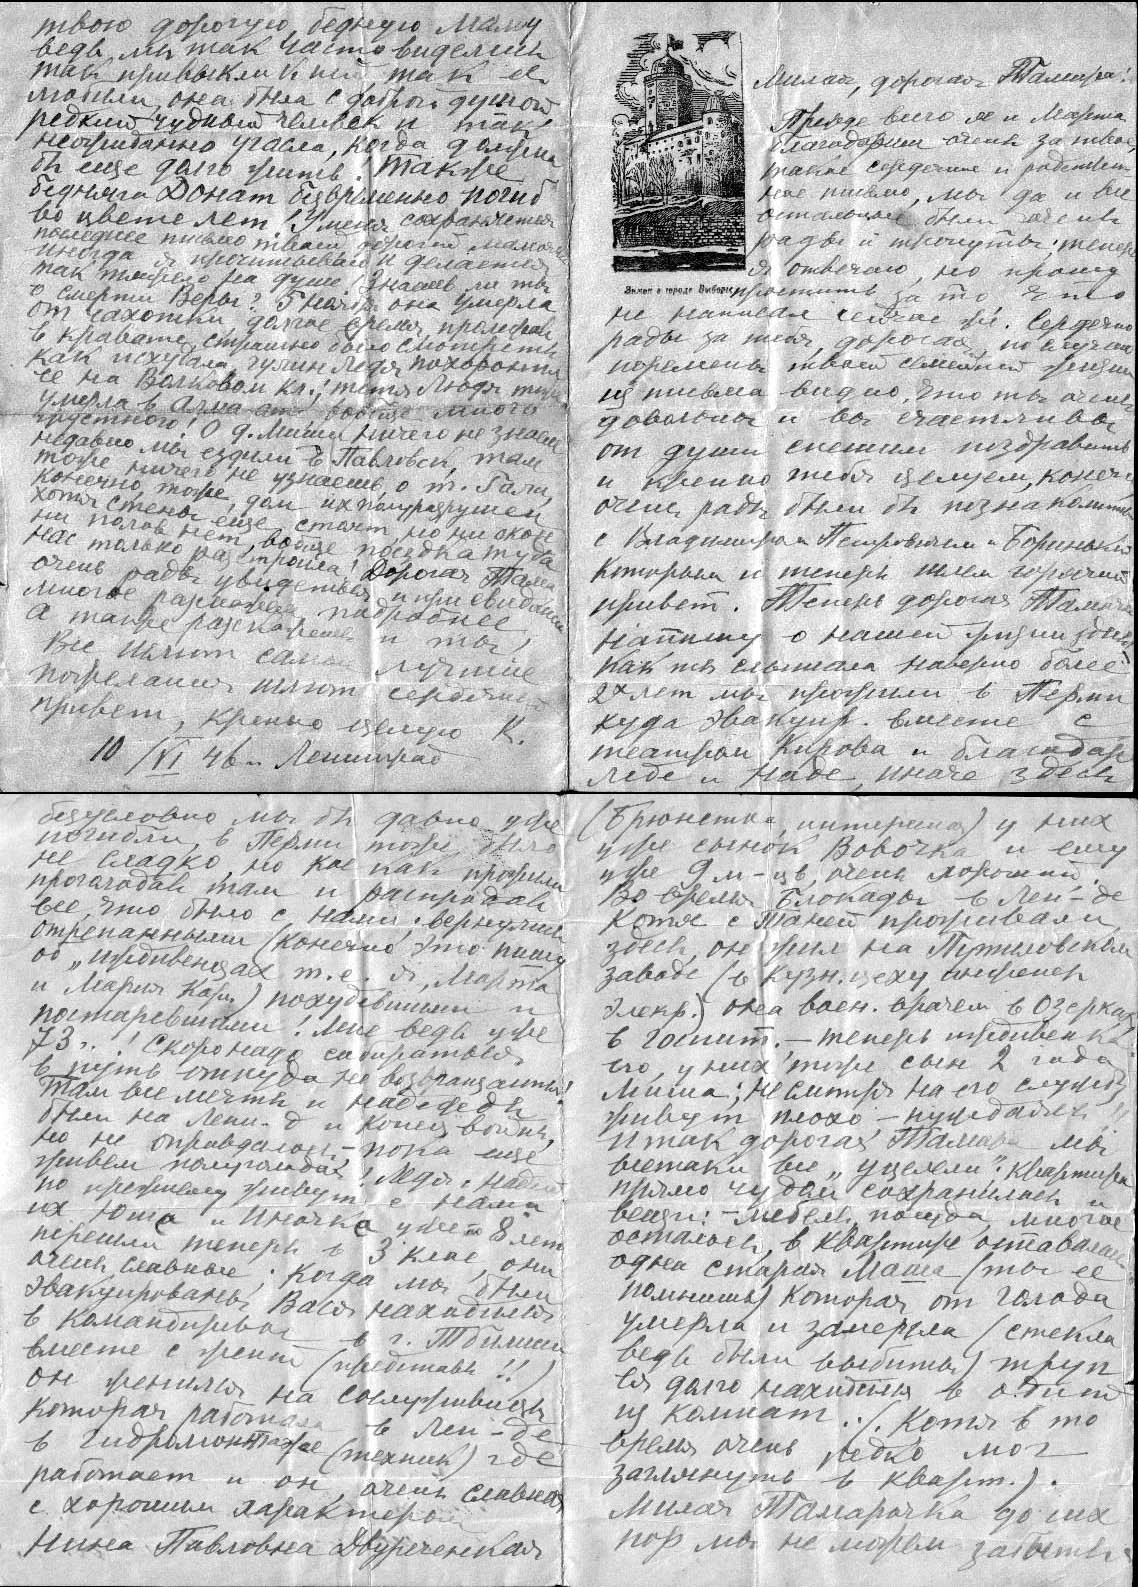 Милая, дорогая Тамара!
Прежде всего я и Марта
благодарим очень за твое,
такое сердечное и родствен-
ное письмо, мы да и все
остальные были очень
рады и тронуты; теперь
я отвечаю, но прошу
Замок в городе Выборге
простить за то что
не написал сейчас же. Сердечно
рады за тебя, дорогая, по случаю
перемены твоей семейной жизни
из письма видно, что ты очень
довольны и вы счастливы
от души спешим поздравить
и крепко тебя целуем, конечно
очень рады были бы познакомиться
с Владимиром Петровичем и Боринькой
которым и теперь шлем горячий
привет. Теперь дорогая Тамочка
напишу о нашей жизни здесь,
как ты слышала наверно более
2х лет мы прожили в Перми
куда эвакуир. вместе с
театром Кирова и благодаря
Леде и Наде, иначе здесь
безусловно мы бы давно уже
погибли, в Перми тоже было
не сладко, но кое как прожили
проголодав там и распродав
все, что было с нами; вернулись
отрепанными (конечно это пишу
об „иждивенцах т.е. я, Марта
и Мария Карл.) похудевшими и
постаревшими! Мне ведь уже
73 г.! Скоро надо собираться
в путь откуда не возвращаются!
Там все мечты и надежды
были на Лени-д и конец войны,
но не оправдалось – пока еще
живем полуголодая! Ледя, Надя
по прежнему живут с нами
их Юта и Иночка уже 8 лет
перешли теперь в 3 клас, они
очень славные; Когда мы были
эвакуированы Вася находился
в командировке в г. Тбилиси
вместе с женой (представь!!)
он женился на сослуживице
которая работала в Лен-де
в Гидромонтаже (техник) где
работает и он, очень славная
с хорошим характером
Нина Павловна Двуреченская
(Брюнетка, интересная) у них
уже сынок Вовочка и ему
уже 9 м-цев, очень хороший.
Во время Блокады в Лен-де
Котя с Таней проживали
здесь, он жил на Путиловском
заводе (в Кузн. цеху инженер
Элекр.) она воен. врачем в Озерках
в госпит. – теперь иждивенка
его, у них тоже сын 2 года
Миша; не смотря на его службу
живут плохо, – нуждаются!!
Итак дорогая Тамара мы
всетаки все „уцелели": квартира
прямо чудом сохранилась и
вещи: – мебель, посуда, многое
осталось, в квартире оставалась
одна старая Маша (ты ее
помнишь) которая от голода
умерла и замерзла (стекла
ведь были выбиты) труп
ея долго находился в одной
из комнат.. (Котя в то
время очень редко мог
заглянуть в кварт.).
Милая Тамарочка до сих
пор мы не можем забыть
твою дорогую бедную маму
ведь мы так часто виделись
так привыкли к ней так ее
любили, она была с доброй душой
редкий чудный человек и так
неожиданно угасла, когда должна
бы еще долго жить! Также
бедняга Донат безвременно погиб
во цвете лет! У меня сохраняется
последнее письмо твоей дорогой мамочки
иногда я прочитываю и делается
так тяжело на душе. Знаешь ли ты
о смерти Веры? 5 ноября она умерла
от чахотки, долгое время пролежав
в кравате, страшно было смотреть
как исхудала чужие люди похоронили
ее на Волковом кл.; тетя Люда тоже
умерла в Алма-ате вообще много
грустного! О д. Миши ничего не знаем
недавно мы ездили в Павловск, там
тоже ничего не узнаешь о т. Гали,
конечно тоже, дом их полуразрушен
хотя стены еще стоят, но ни окон
ни полов нет, вобще поездка туда
нас только расстроила! Дорогая Тама
очень рады увидеться и при свидании
многое расскажем подробнее,
а также расскажешь и ты!
Все шлют самые лучшие
пожелания шлют сердечный
привет, крепко целую К.
10/VI 46 г. Ленинград